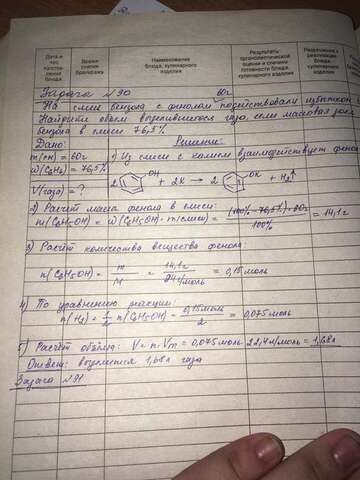 Дата и час изготовления блюда
Время снятия бракеража
Наименование блюда, кулинарного изделия
Результаты органолептической оценки и степени готовности блюда, кулинарного изделия
Разрешение к реализации блюда, кулинарного изделия
Задача №90
60г
На смесь бензола с фенолом подействовали избытком
Найдите объем выделившегося газа, если массовая доля
бензола в смеси 76,5%
Дано: Решение:
m(см) = 60г 1) Из смеси с калием взаимодействует фенол
W(C6H6) = 76,5%
2 OH + 2K → 2 OK + H2↑
V(газа) = ?
2) Расчёт массы фенола в смеси:
m(C6H5OH) = W(C6H5OH · m(смеси) = (100% - 76,5%) · 60г / 100% = 14,1г
3) Расчёт количества вещества фенола
n(C6H5OH) = m / M = 14,1г / 94г/моль = 0,15моль
4) По уравнению реакции:
n(H2) = 1/2 n(C6H5OH) = 0,15моль / 2 = 0,075моль
5) Расчёт объёма: V = n · Vm = 0,075моль · 22,4л/моль = 1,68л
Ответ: выделится 1,68л газа
Задача №91